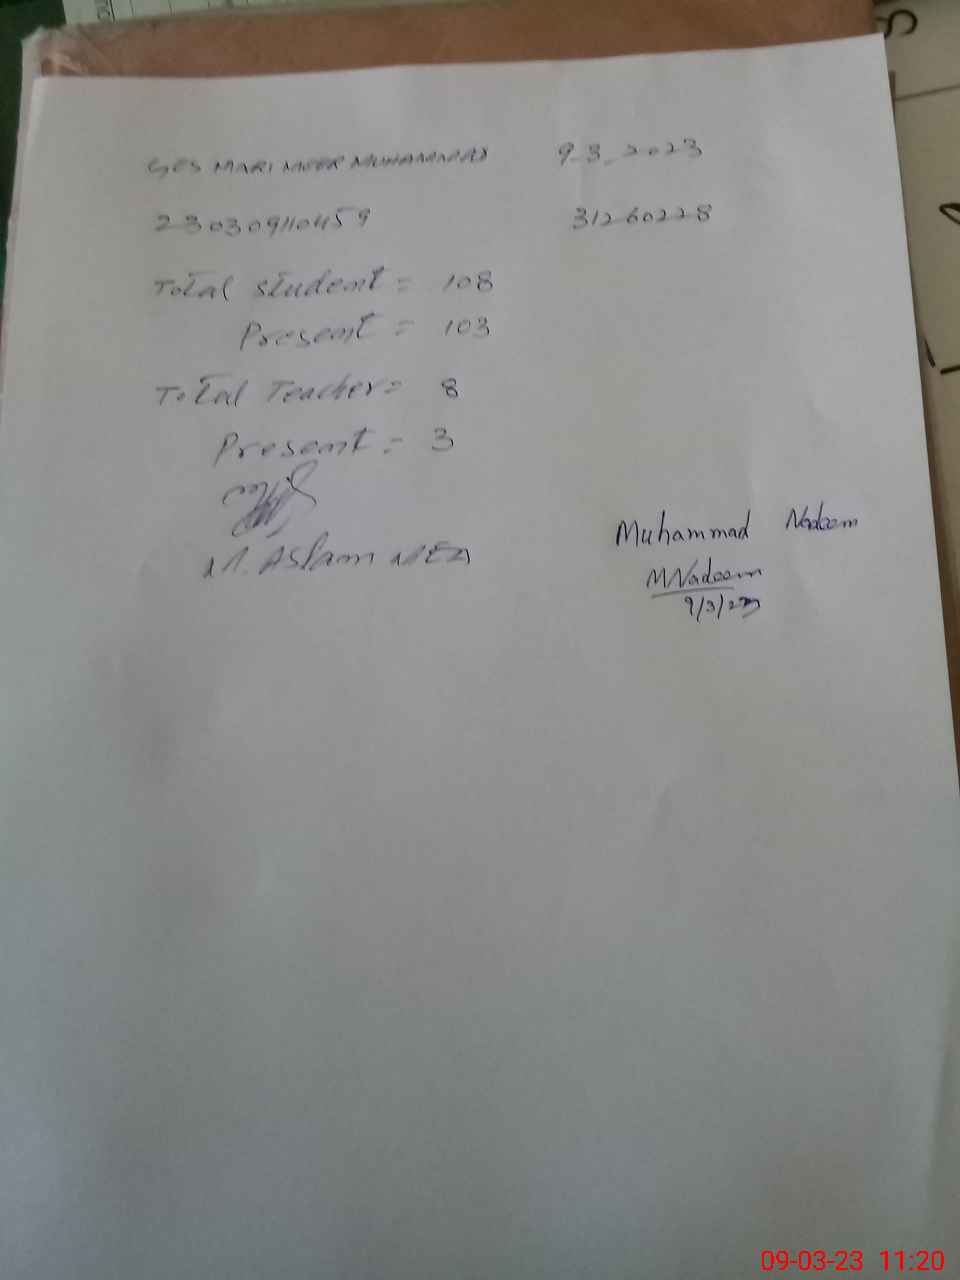 GES MARI MEER MUHAMMAD 9-3-2023
230309110459 31260228
Total Student = 108
Present = 103
Total Teacher = 8
Present = 3
M. Aslam MEA
Muhammad Nadeem
MNadeem
9/3/23
09-03-23 11:20